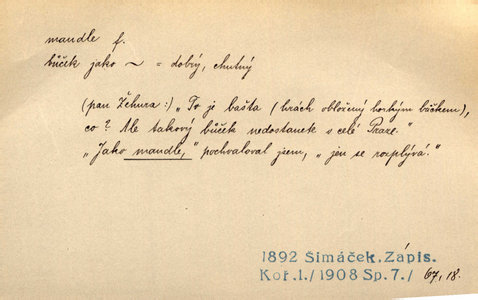 mandle f.
bůček jako ~ = dobrý, chutný
(pan Žehura:) „To je bašta (hrách obložený horkým bůčkem),
co? Ale takový bůček nedostanek v celé Praze."
„Jako mandle," pochvaloval jsem, „jen se rozplývá."
1892 Šimáček, Zápis.
Koř. 1./1908 Sp. 7./ 67, 18.